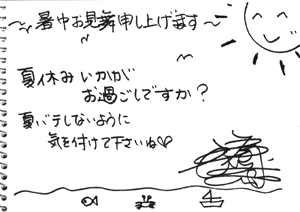 ～暑中お見舞申し上げます～
夏休みいかが
お過ごしですか？
夏バテしないように
気を付けて下さいね♡